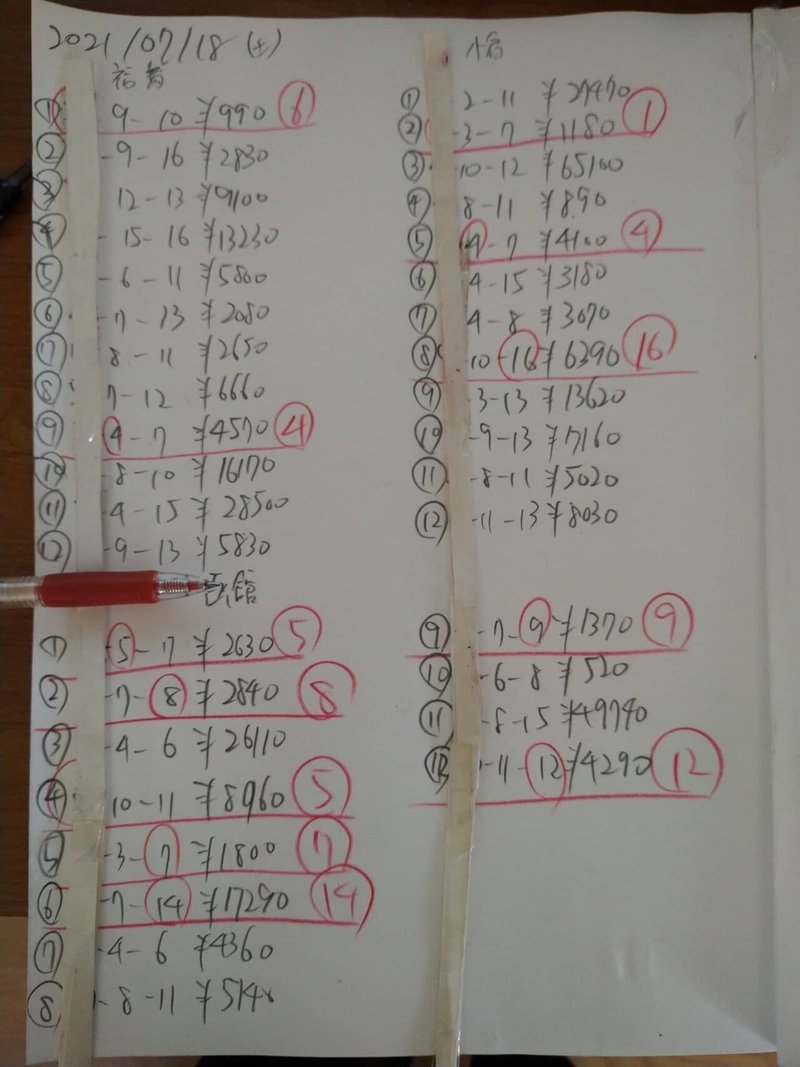 2021/07/18 (土)
① 9-10 ¥990 ⑥
② -9-16 ¥2830
③ 12-13 ¥9100
④ -15-16 ¥13230
⑤ -6-11 ¥5800
⑥ -7-13 ¥2080
⑦ 8-11 ¥2650
⑧ 7-12 ¥6660
⑨ 4-7 ¥4570 ④
⑩ -8-10 ¥16170
⑪ -4-15 ¥28500
⑫ -9-13 ¥5830
館
① -5-7 ¥2630 ⑤
② -7-⑧ ¥2840 ⑧
③ -4-6 ¥26110
④ 10-11 ¥8960 ⑤
⑤ -3-⑦ ¥1800 ⑦
⑥ -7-⑭ ¥17290 ⑭
⑦ -4-6 ¥4360
⑧ -8-11
① 2-11 ¥27470
② -3-7 ¥1180 ①
③ -10-12 ¥65100
④ 8-11 ¥890
⑤ ④-7 ¥4100 ④
⑥ 4-15 ¥3180
⑦ 4-8 ¥3070
⑧ -10-⑯ ¥6390 ⑯
⑨ -3-13 ¥13620
⑩ -9-13 ¥7160
⑪ -8-11 ¥5020
⑫ -11-13 ¥8030
⑨ -7-⑨ ¥1370 ⑨
⑩ -6-8 ¥520
⑪ -8-15 ¥49740
⑫ -11-⑫ ¥4290 ⑫